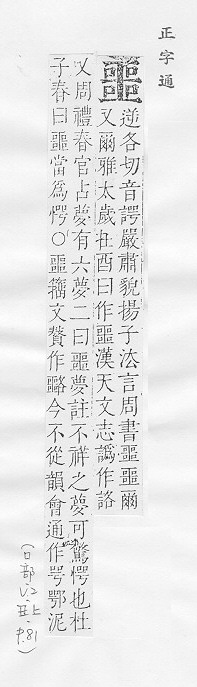 正字通
噩逆各切音諤嚴肅貌揚子法言周書噩噩爾
又爾雅太歲在酉曰作噩漢天文志譌作詻
又周禮春官占夢有六夢二曰噩夢註不祥之夢可驚愕也杜
子春曰噩當爲愕○噩籀文贅作今不從韻會通作咢鄂泥
(口部、V.2-丑上-p.81)